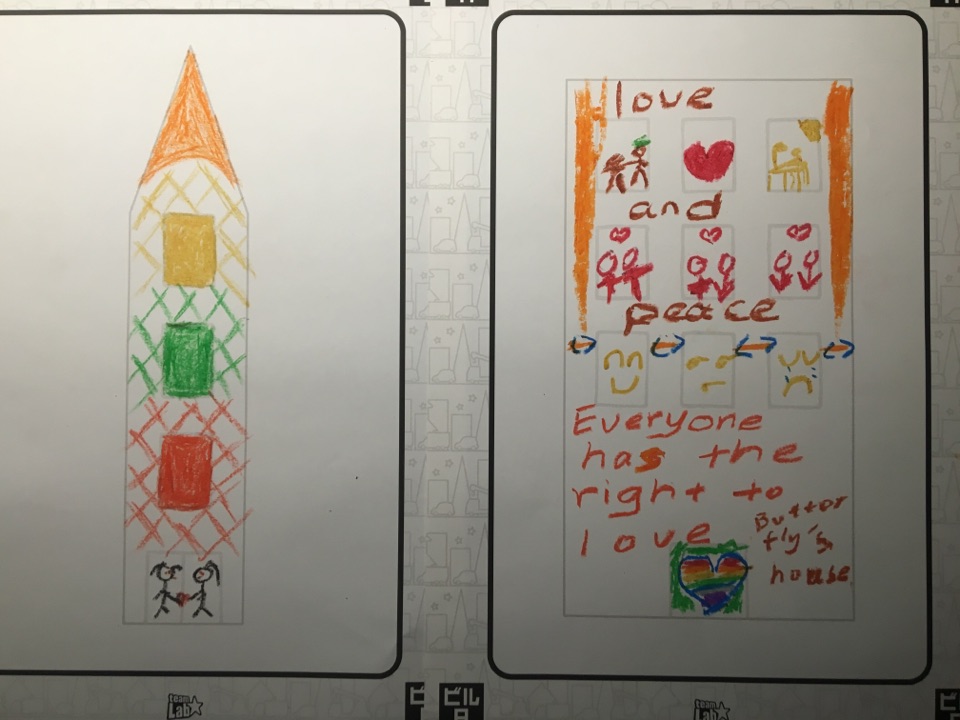 love
and
peace
Everyone
has the
right to
love
Buttor
fly's
house
team
Lab
ビ
ビル
team
Lab
ビ